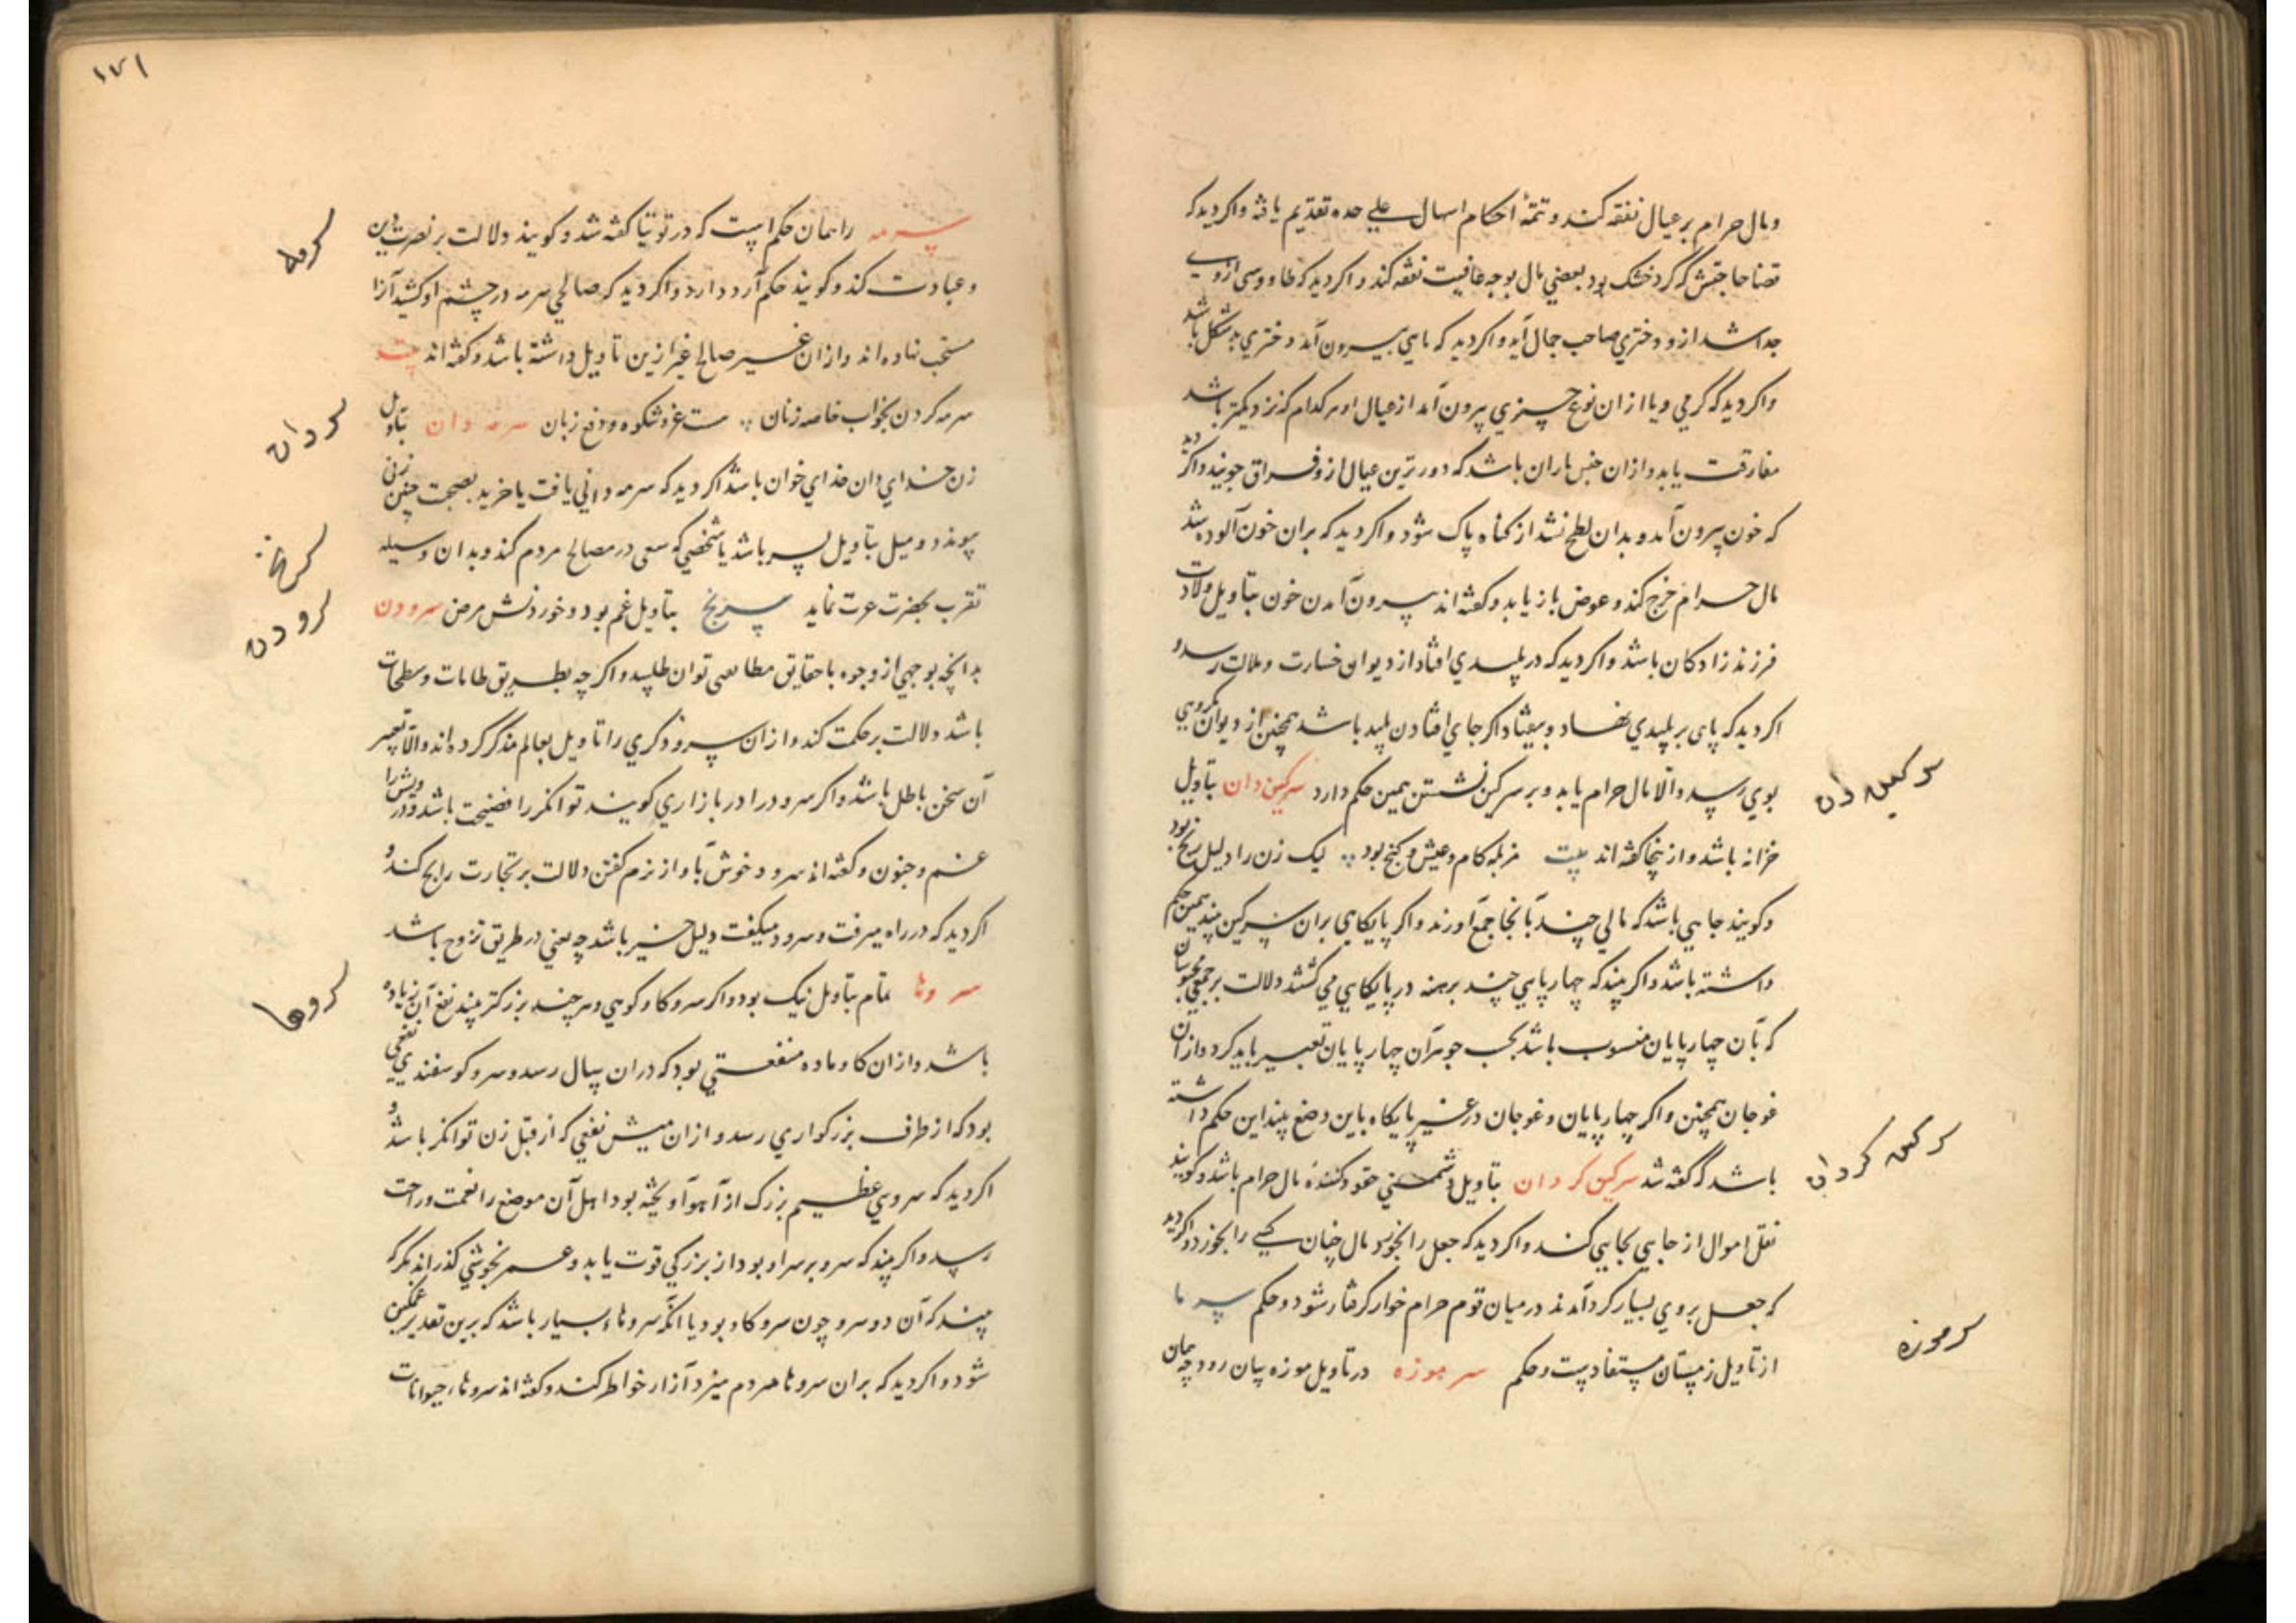 ومال حرام بر عیال نفقه کند و تتمهٔ احکام اسهال علی حده تقدیم یافته واکر دید که
قضا حاجتش که کرد خشک بود بعضی مال بوجه عافیت نفقه کند واکر دید که طاووسی از وی
جدا شد ازو دختری صاحب جمال آید واکر دید که ماهی بیرون آمد دختری بدشکل باشد
واکر دید که کرمی ویا از ان نوع چیزی بیرون آمد از عیال او هر کدام که نزدیکتر باشد
مفارقت یابد وازان جنس باران باشد که دورترین عیال ازو فراق جویند واکر دید
که خون بیرون آمد وبدان لطخ نشد از کناه پاک شود واکر دید که بران خون آلوده شد
مال حرام خرج کند وعوض باز یابد وکفته اند بیرون آمدن خون بتاویل ولادت
فرزند زادکان باشد واکر دید که در پلیدی افتاد از دیوان خسارت وملالت رسد و
اکر دید که پای بر پلیدی نهاد وبیفتاد اکر جای افتادن پلید باشد همچنین از دیوان مکروهی
بوی رسد والا مال حرام یابد وبر سرکین نشستن همین حکم دارد سرکین دان بتاویل
خزانه باشد وازینجا کفته اند بیت مزبله کام وعیش وکنج بود لیک زن را دلیل رنج بود
وکویند جایی باشد که مالی چند آنجا جمع آورند واکر پایکاهی بران سرکین بیند همین حکم
داشته باشد واکر بیند که چهارپایی چند برهنه در پایکاهی می کشند دلالت بر جمعی محبوسان
که بآن چهارپایان منسوب باشد بحسب جوهر آن چهارپایان تعبیر باید کرد وازان
غوجان همچنین واکر چهارپایان وغوجان در غیر پایکاه باین وضع بیند این حکم داشته
باشد که کفته شد سرکین کردان بتاویل دشمنی حقود کنندهٔ مال حرام باشد وکویند
نقل اموال از جایی بجایی کند واکر دید که جعل را بخورد مال چنان کسی را بخورد واکر دید
که جعل بر وی بسیار کرد آمدند در میان قوم حرام خوار کرفتار شود وحکم سرما
از تاویل زمستان مستفادست وحکم سر موزه در تاویل موزه بیان رود چه همان
سرکین دان
سرکین کردان
سرموزه
۱۷۱
سرمه را همان حکم است که در توتیا کفته شد وکویند دلالت بر نصرت دین
وعبادت کند وکویند حکم آرد دارد واکر دید که صالحی سرمه در چشم او کشید آنرا
مستحب نهاده اند وازان غیر صالح غیر ازین تاویل داشته باشد وکفته اند بیت
سرمه کردن بخواب خاصه زنان هست عز وشکوه ودفع زبان سرمه دان بتاویل
زن خدای دان خدای خوان باشد اکر دید که سرمه دانی یافت یا خرید بصحبت چنین زنی
پیوندد ومیل بتاویل پسر باشد یا شخصی که سعی در مصالح مردم کند وبدان وسیله
تقرب بحضرت عزت نماید سرنج بتاویل غم بود وخوردنش مرض سرودن
بدانچه بوجهی از وجوه با حقایق مطابق توان طلبید واکر چه بطریق طامات وسطحات
باشد دلالت بر حکمت کند وازان سرودکری را تاویل بعالم مذکر کرده اند والا تعبیر
آن سخن باطل باشد واکر سرود را در بازاری کویند توانکر را فضیحت باشد ودرویش را
غم وجنون وکفته اند سرود خوش بآواز نرم کفتن دلالت بر تجارت رابح کند و
اکر دید که در راه میرفت وسرود میکفت دلیل خیر باشد چه یعنی در طریق تزوج باشد
سروها تمام بتاویل نیک بود واکر سرو کاو کوهی وهر چند بزرکتر بیند نفع آن زیاده
باشد وازان کاو ماده منفعتی بود که در ان سال رسد وسرو کوسفندی نفعی
بود که از طرف بزرکواری رسد وازان میش نفعی که از قبل زن توانکر باشد و
اکر دید که سروی عظیم بزرک از آهو آویخته بود اهل آن موضع را نعمت وراحت
رسد واکر بیند که سرو بر سر او بود از بزرکی قوت یابد وعمر بخوشی کذراند مکر که
بیند که آن دو سرو چون سرو کاو بود یا آنکه سروهاء بسیار باشد که برین تقدیر غمکین
شود واکر دید که بران سروها مردم میزد آزار خواطر کند وکفته اند سروهاء حیوانات
سرمه
سرمه دان
سرنج
سرودن
سروها